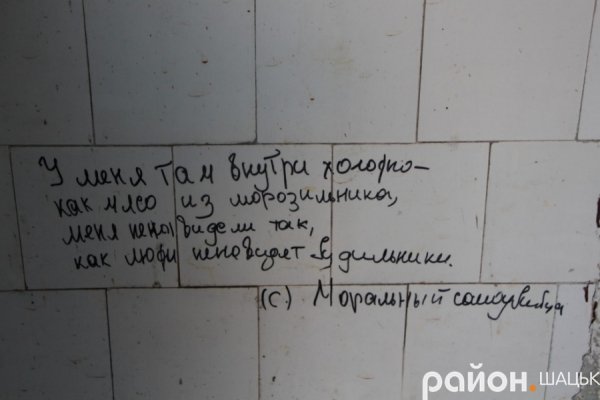 У меня там внутри холодно–
как мясо из морозильника,
меня ненавидели так,
как люди ненавидят будильники.
(С) Моральный самоубийца
район.ШАЦЬК